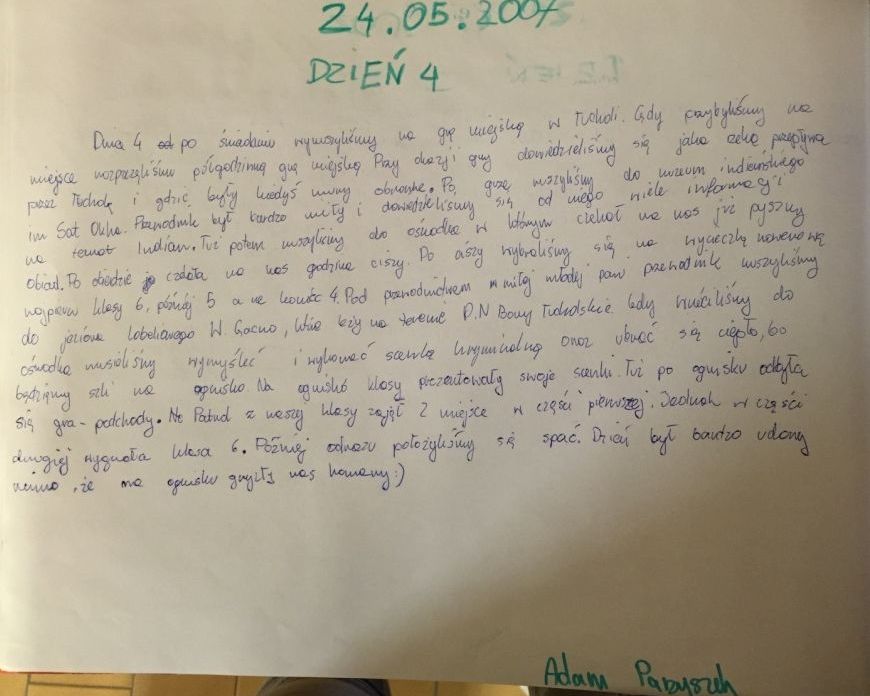 24.05.2007
DZIEŃ 4
Dnia 4 po śniadaniu wyruszyliśmy na grę miejską w Tucholi. Gdy przybyliśmy na
miejsce rozpoczęliśmy półgodzinną grę miejską Przy okazji gry dowiedzieliśmy się jaka rzeka przepływa
przez Tucholę i gdzie były kiedyś mury obronne. Po grze ruszyliśmy do muzeum indiańskiego
im Sat Okha. Przewodnik był bardzo miły i dowiedzieliśmy się od niego wiele informacji
na temat Indian. Tuż potem ruszyliśmy do ośrodka w którym czekał na nas już pyszny
obiad. Po obiedzie czekała na nas godzina ciszy. Po ciszy wybraliśmy się na wycieczkę rowerową
najpierw klasy 6, później 5 a na koniec 4. Pod przewodnictwem miłej młodej pani przewodnik ruszyliśmy
do jeziora lobeliowego W. Gacno, które leży na terenie P.N Bory Tucholskie. Gdy wróciliśmy do
ośrodka musieliśmy wymyśleć i wykonać scenkę kryminalną oraz ubrać się ciepło, bo
będziemy szli na ognisko. Na ognisku klasy prezentowały swoje scenki. Tuż po ognisku odbyła
się gra - podchody. Nasza klasy zajął 2 miejsce w części pierwszej. Jednak w części
drugiej wygrała klasa 6. Później odrazu położyliśmy się spać. Dzień był bardzo udany
mimo, że na ognisku gryzły nas komary:)
Adam